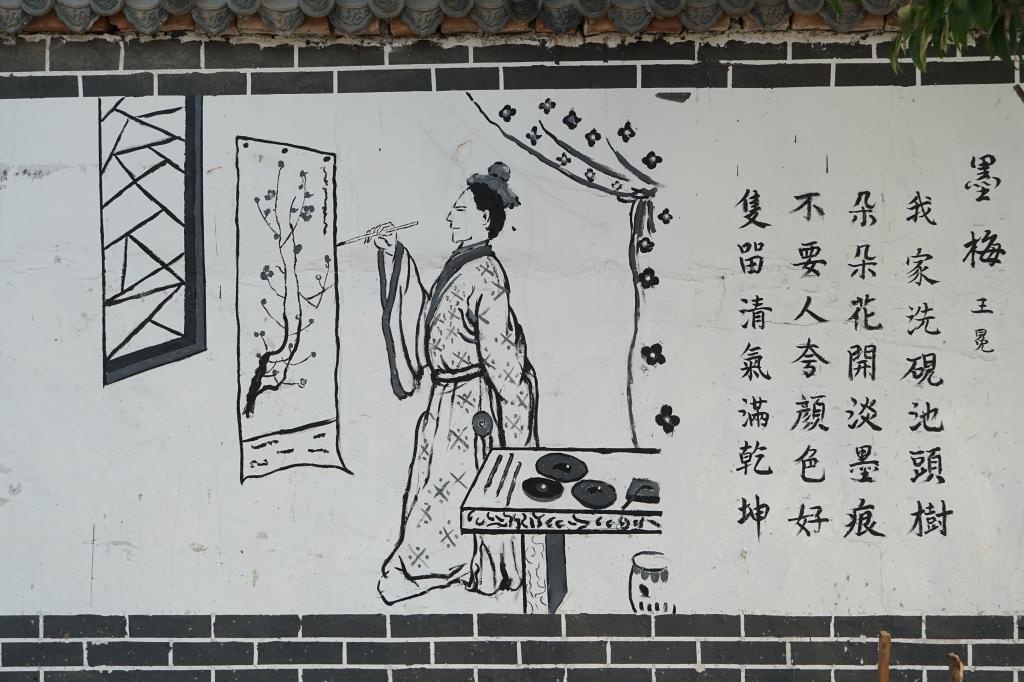 墨梅 王冕
我家洗硯池頭樹
朵朵花開淡墨痕
不要人夸顏色好
隻畱清氣滿乾坤